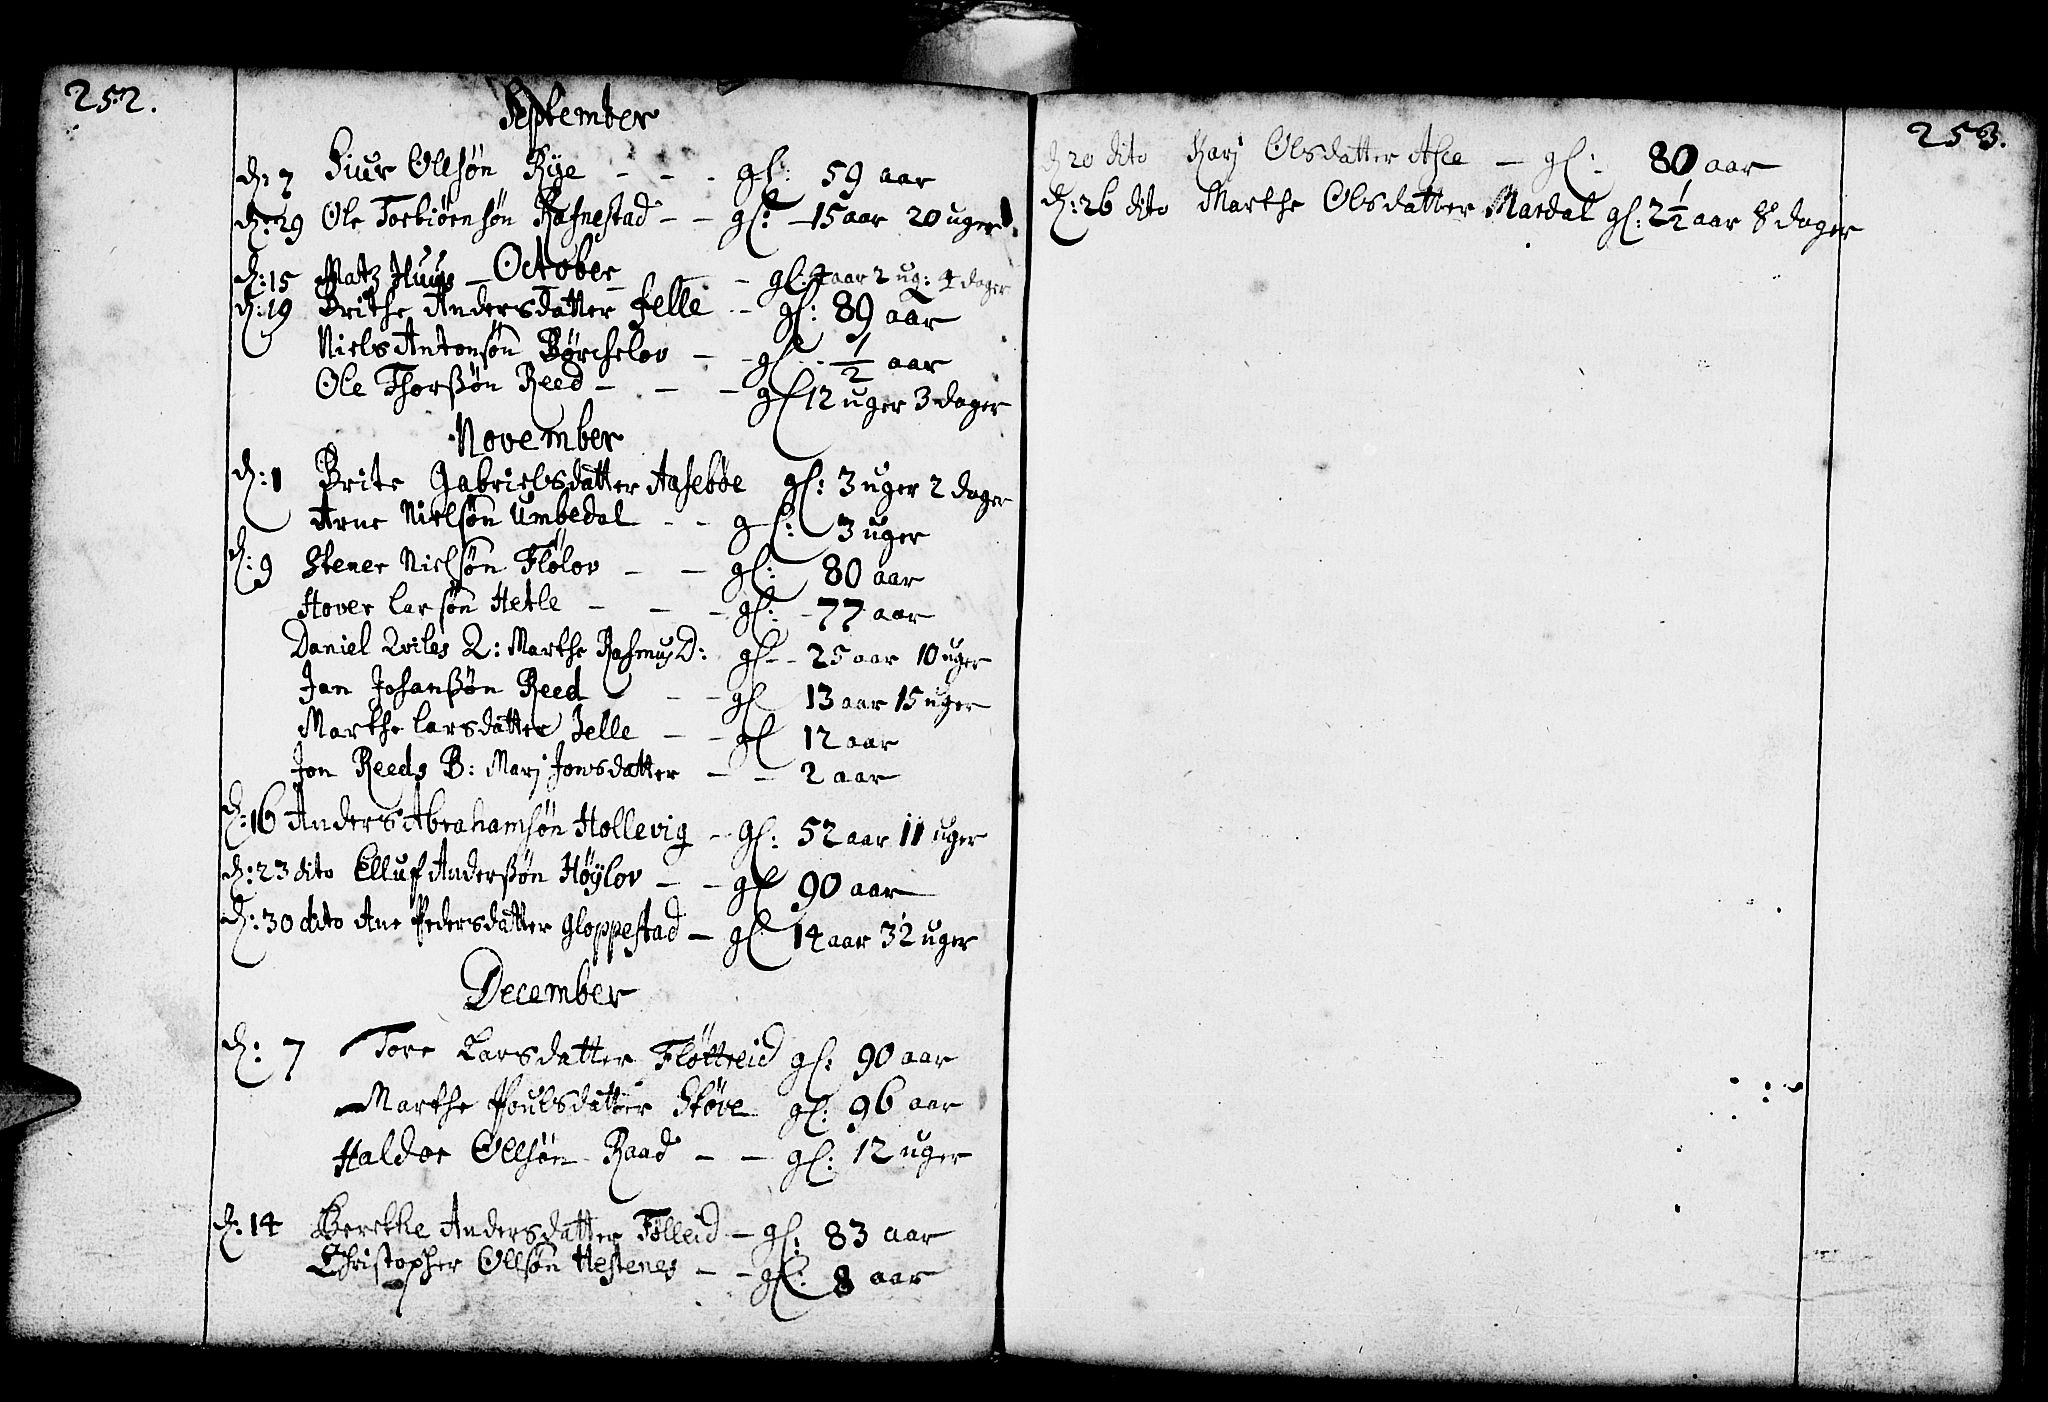 252.
September
d: 7 Siur Ollsøn Rye - - - gl: 59 aar
d: 29 Ole Torbiørnsøn Rafnestad - - gl: 15 aar 20 uger
October
d: 15 Matz Huus - - gl: 4 aar 2 ug: 4 dager
d: 19 Brithe Andersdatter Felle - gl: 89 aar
Niels Antonsøn Børchelov - - gl - 1/2 aar
Ole Thorßøn Reed - - - gl 12 uger 3 dager
November
d: 1 Brite Gabrielsdatter Aasebøe gl: 3 uger 2 dager
Arne Nielsøn Umbedal - - gl: 3 uger
d: 9 Stener Nielsøn Flølov - - gl: 80 aar
Hover Larsøn Hetle - - - gl: - 77 aar
Daniel Qviles Q: Marthe RasmusD: gl - - 25 aar 10 uger
Jan Johanßøn Reed - - gl 13 aar 15 uger
Marthe Larsdatter Felle - - gl 12 aar
Jon Reeds B: Marj Jonsdatter - - 2 aar
d: 16 Anders Abrahamsøn Hollevig - gl: 52 aar 11 uger
d: 23 dito Elluf Anderßøn Høylov - - gl 90 aar
d: 30 dito Ane Pedersdatter Gloppestad - gl 14 aar 32 uger
December
d: 7 Tore Larsdatter Fløttreid gl: 90 aar
Marthe Poulsdatter Støve gl: 96 aar
Haldor Ollsøn Raad - - gl: 12 uger
d: 14 Berethe Andersdatter Følleid - gl: 83 aar
Christopher Ollsøn Hestenes - - gl: 8 aar
253.
d 20 dito Karj Olsdatter Ase - gl: 80 aar
d: 26 dito Marthe Olsdatter Mardal gl: 2 1/2 aar 8 dager